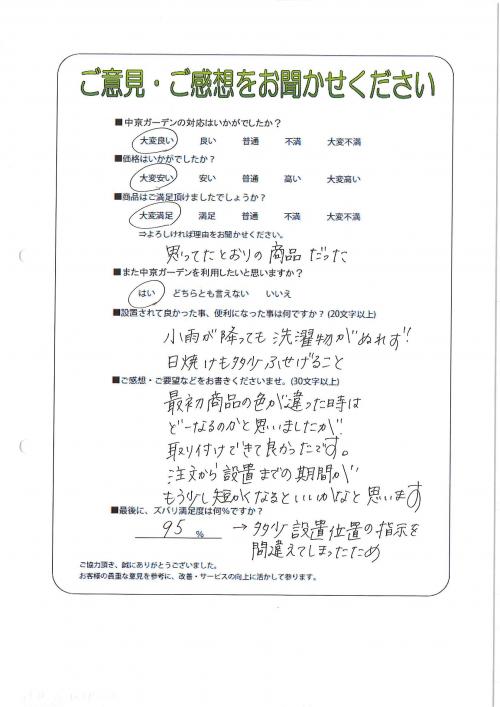 ご意見・ご感想をお聞かせください
■中京ガーデンの対応はいかがでしたか？
大変良い 良い 普通 不満 大変不満
■価格はいかがでしたか？
大変安い 安い 普通 高い 大変高い
■商品はご満足頂けましたでしょうか？
大変満足 満足 普通 不満 大変不満
⇒よろしければ理由をお聞かせください。
思ってたとおりの商品だった
■また中京ガーデンを利用したいと思いますか？
はい どちらとも言えない いいえ
■設置されて良かった事、便利になった事は何ですか？(20文字以上)
小雨が降っても洗濯物がぬれず!!
日焼けも多少ふせげること
■ご感想・ご要望などをお書きくださいませ。(30文字以上)
最初商品の色が違った時は
どーなるのかと思いましたが!
取り付けできて良かったです。
注文から設置までの期間が
もう少し短かくなるといいかなと思います
■最後に、ズバリ満足度は何%ですか？
95 % → 多少設置位置の指示を
間違えてしまったため
ご協力頂き、誠にありがとうございました。
お客様の貴重な意見を参考に、改善・サービスの向上に活かして参ります。